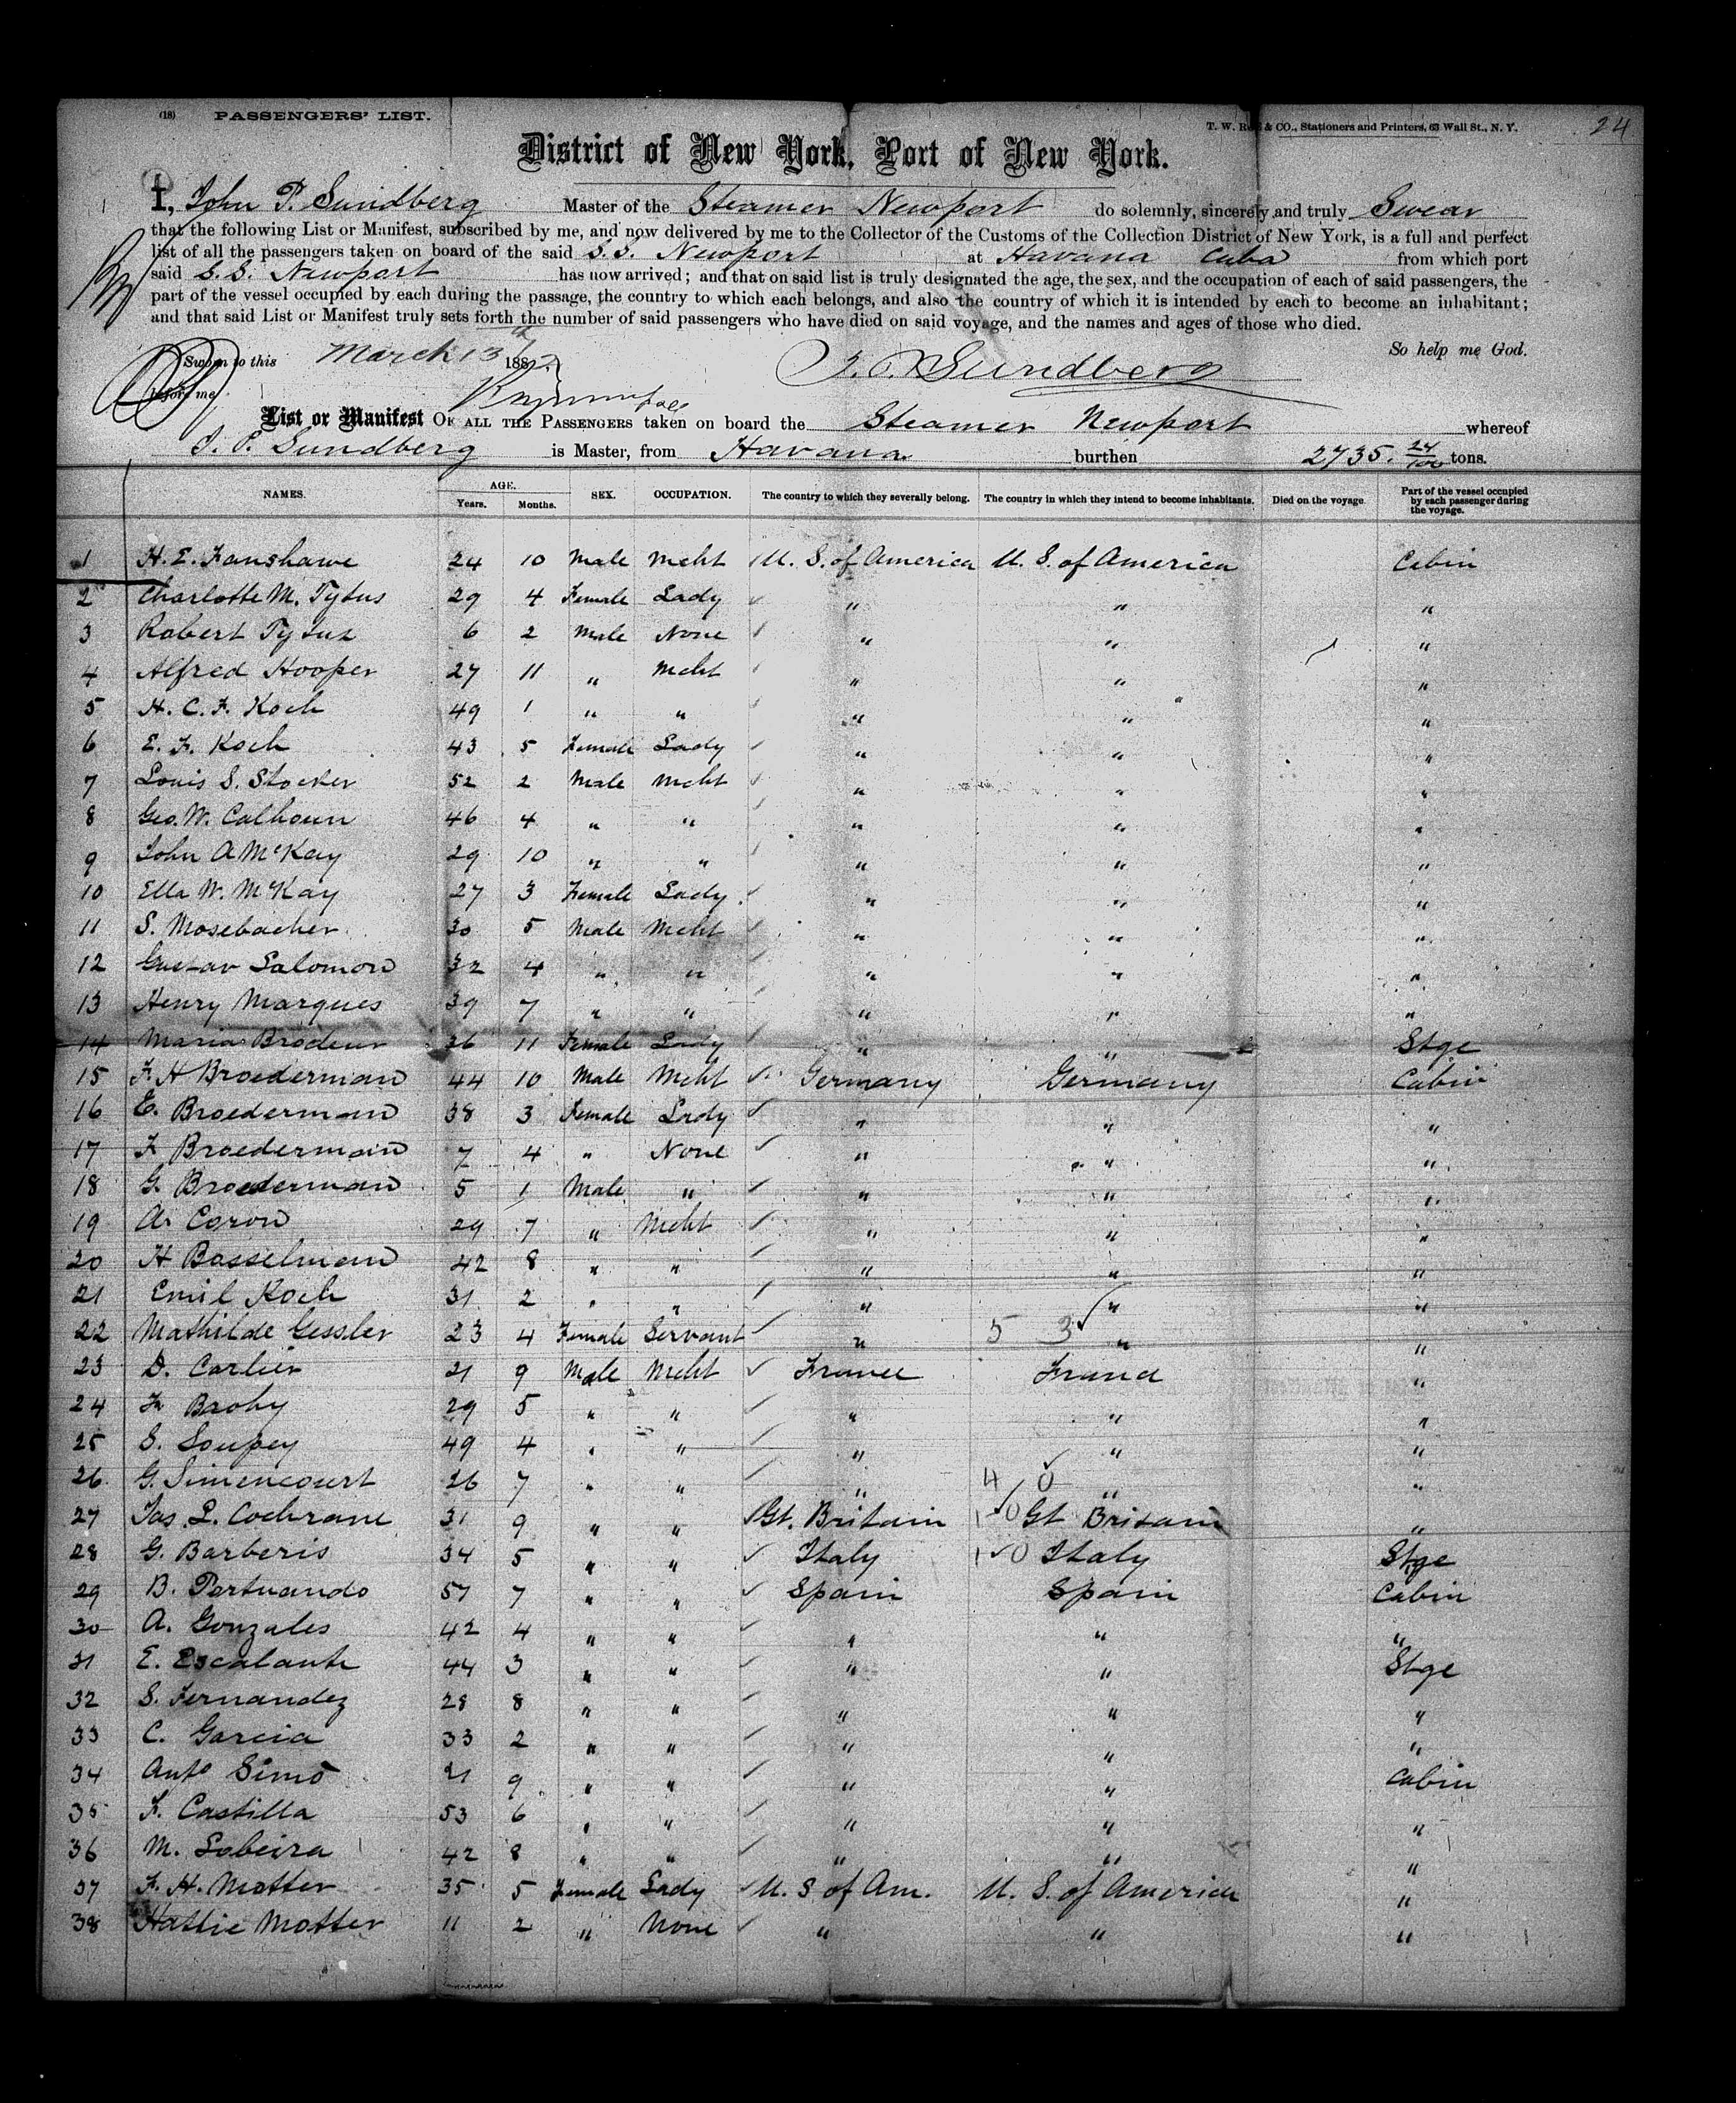 (18) PASSENGERS' LIST.
T. W. & CO., Stationers and Printers, 63 Wall St., N. Y.
24
District of New York, Port of New York.
I, John P. Sundberg Master of the Steamer Newport do solemnly, sincerely and truly Swear
that the following List or Manifest, subscribed by me, and now delivered by me to the Collector of the Customs of the Collection District of New York, is a full and perfect
list of all the passengers taken on board of the said S.S. Newport at Havana Cuba from which port
said S.S. Newport has now arrived; and that on said list is truly designated the age, the sex, and the occupation of each of said passengers, the
part of the vessel occupied by each during the passage, the country to which each belongs, and also the country of which it is intended by each to become an inhabitant;
and that said List or Manifest truly sets forth the number of said passengers who have died on said voyage, and the names and ages of those who died.
So help me God.
Sworn to this March 13th 188
J. P. Sundberg
before me
List or Manifest OF ALL THE PASSENGERS taken on board the Steamer Newport whereof
J. P. Sundberg is Master, from Havana burthen 2735. 24/100 tons.
NAMES. AGE. Years. Months. SEX. OCCUPATION. The country to which they severally belong. The country in which they intend to become inhabitants. Died on the voyage. Part of the vessel occupied by each passenger during the voyage.
1 H. E. Fanshawe 24 10 Male Mcht U. S. of America U. S. of America Cabin
2 Charlotte M. Tytus 29 4 Female Lady " " "
3 Robert Tytus 6 2 Male None " " "
4 Alfred Hooper 27 11 " Mcht " " "
5 H. C. F. Koch 49 1 " " " " "
6 E. F. Koch 43 5 Female Lady " " "
7 Louis S. Stocker 52 2 Male Mcht " " "
8 Geo. W. Calhoun 46 4 " " " " "
9 John A McKay 29 10 " " " " "
10 Ella W. McKay 27 3 Female Lady " " "
11 S. Mosebacher 30 5 Male Mcht " " "
12 Gustav Salomon 32 4 " " " " "
13 Henry Marques 39 7 " " " " "
14 Maria Brodeur 36 11 Female Lady " " Stge
15 F. H Broederman 44 10 Male Mcht Germany Germany Cabin
16 E. Broederman 38 3 Female Lady " " "
17 F Broederman 7 4 " None " " "
18 G. Broederman 5 1 Male " " " "
19 A. Coron 29 7 " Mcht " " "
20 H Bosselman 42 8 " " " " "
21 Emil Koch 31 2 " " " " "
22 Mathilde Gessler 23 4 Female Servant " 5 3 " "
23 D. Carlier 21 9 Male Mcht France France "
24 Fr Brohy 29 5 " " " " "
25 S. Soupey 49 4 " " " " "
26 G. Simencourt 26 7 " " " 4 0 " "
27 Jas. L. Cochrane 31 9 " " Gt. Britain 1 0 Gt Britain "
28 G. Barberis 34 5 " " Italy 1 0 Italy Stge
29 B. Portuando 57 7 " " Spain Spain Cabin
30 A. Gonzales 42 4 " " " " "
31 E. Escalante 44 3 " " " " Stge
32 S. Fernandez 28 8 " " " " "
33 C. Garcia 33 2 " " " " "
34 Anto Simo 21 9 " " " " Cabin
35 F. Castilla 53 6 " " " " "
36 M. Lobeira 42 8 " " " " "
37 F. H. Motter 35 5 Female Lady U. S of Am. U. S. of America "
38 Hattie Motter 11 2 " None " " "